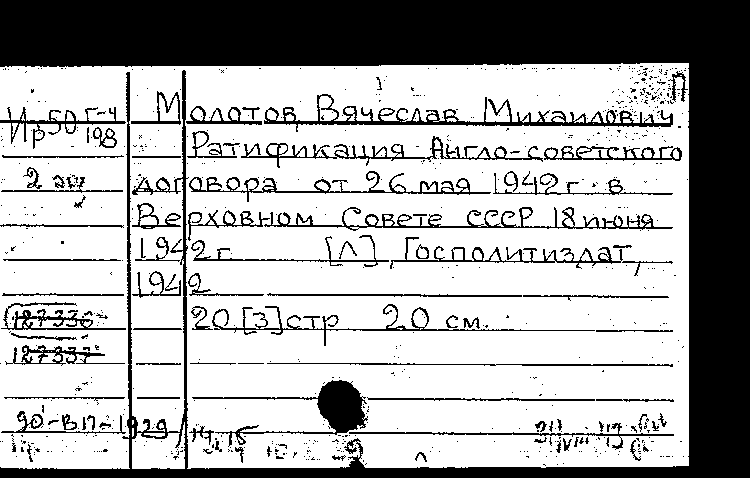 П
Молотов, Вячеслав Михайлович.
Ир50 Г-4
198
Ратификация Англо-советского
2 экз
договора от 26 мая 1942 г. в
Верховном Совете СССР 18 июня
1942 г. [Л], Госполитиздат,
1942
20,[3] стр 20 см.
127336
127337
90-ВП-1929/